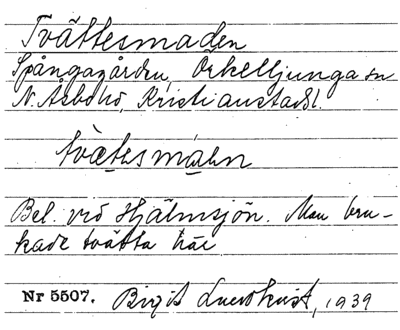 Tvättesmaden
Spångagården, Örkelljunga sn
N. Åsbo hd, Kristianstads l.
tvät̯esmán
Bel. vid Hjälmsjön. Man bru-
kade tvätta här
Nr 5507. Birgit Lundkvist, 1939